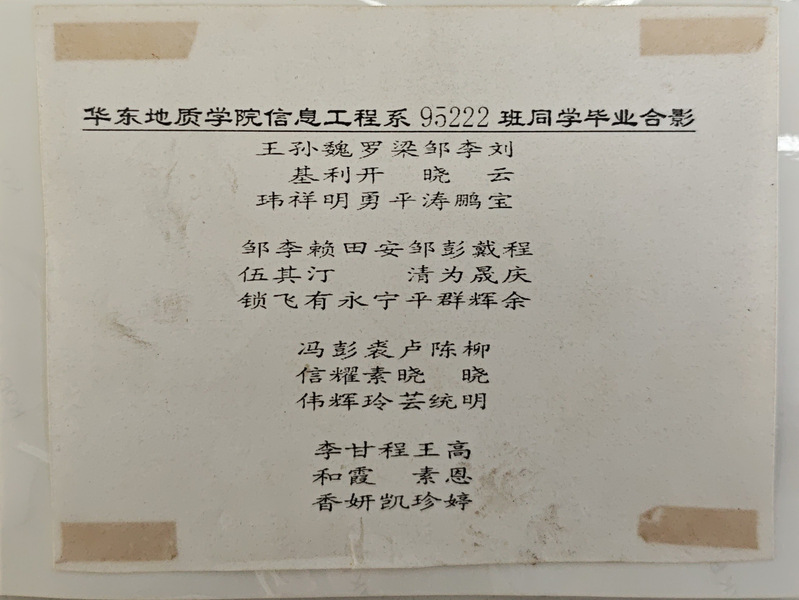 华东地质学院信息工程系95222班同学毕业合影
王孙魏罗梁邹李刘
基利开 晓 云
玮祥明勇平涛鹏宝
邹李赖田安邹彭戴程
伍其汀 清为晟庆
锁飞有永宁平群辉余
冯彭裘卢陈柳
信耀素晓 晓
伟辉玲芸统明
李甘程王高
和霞 素恩
香妍凯珍婷